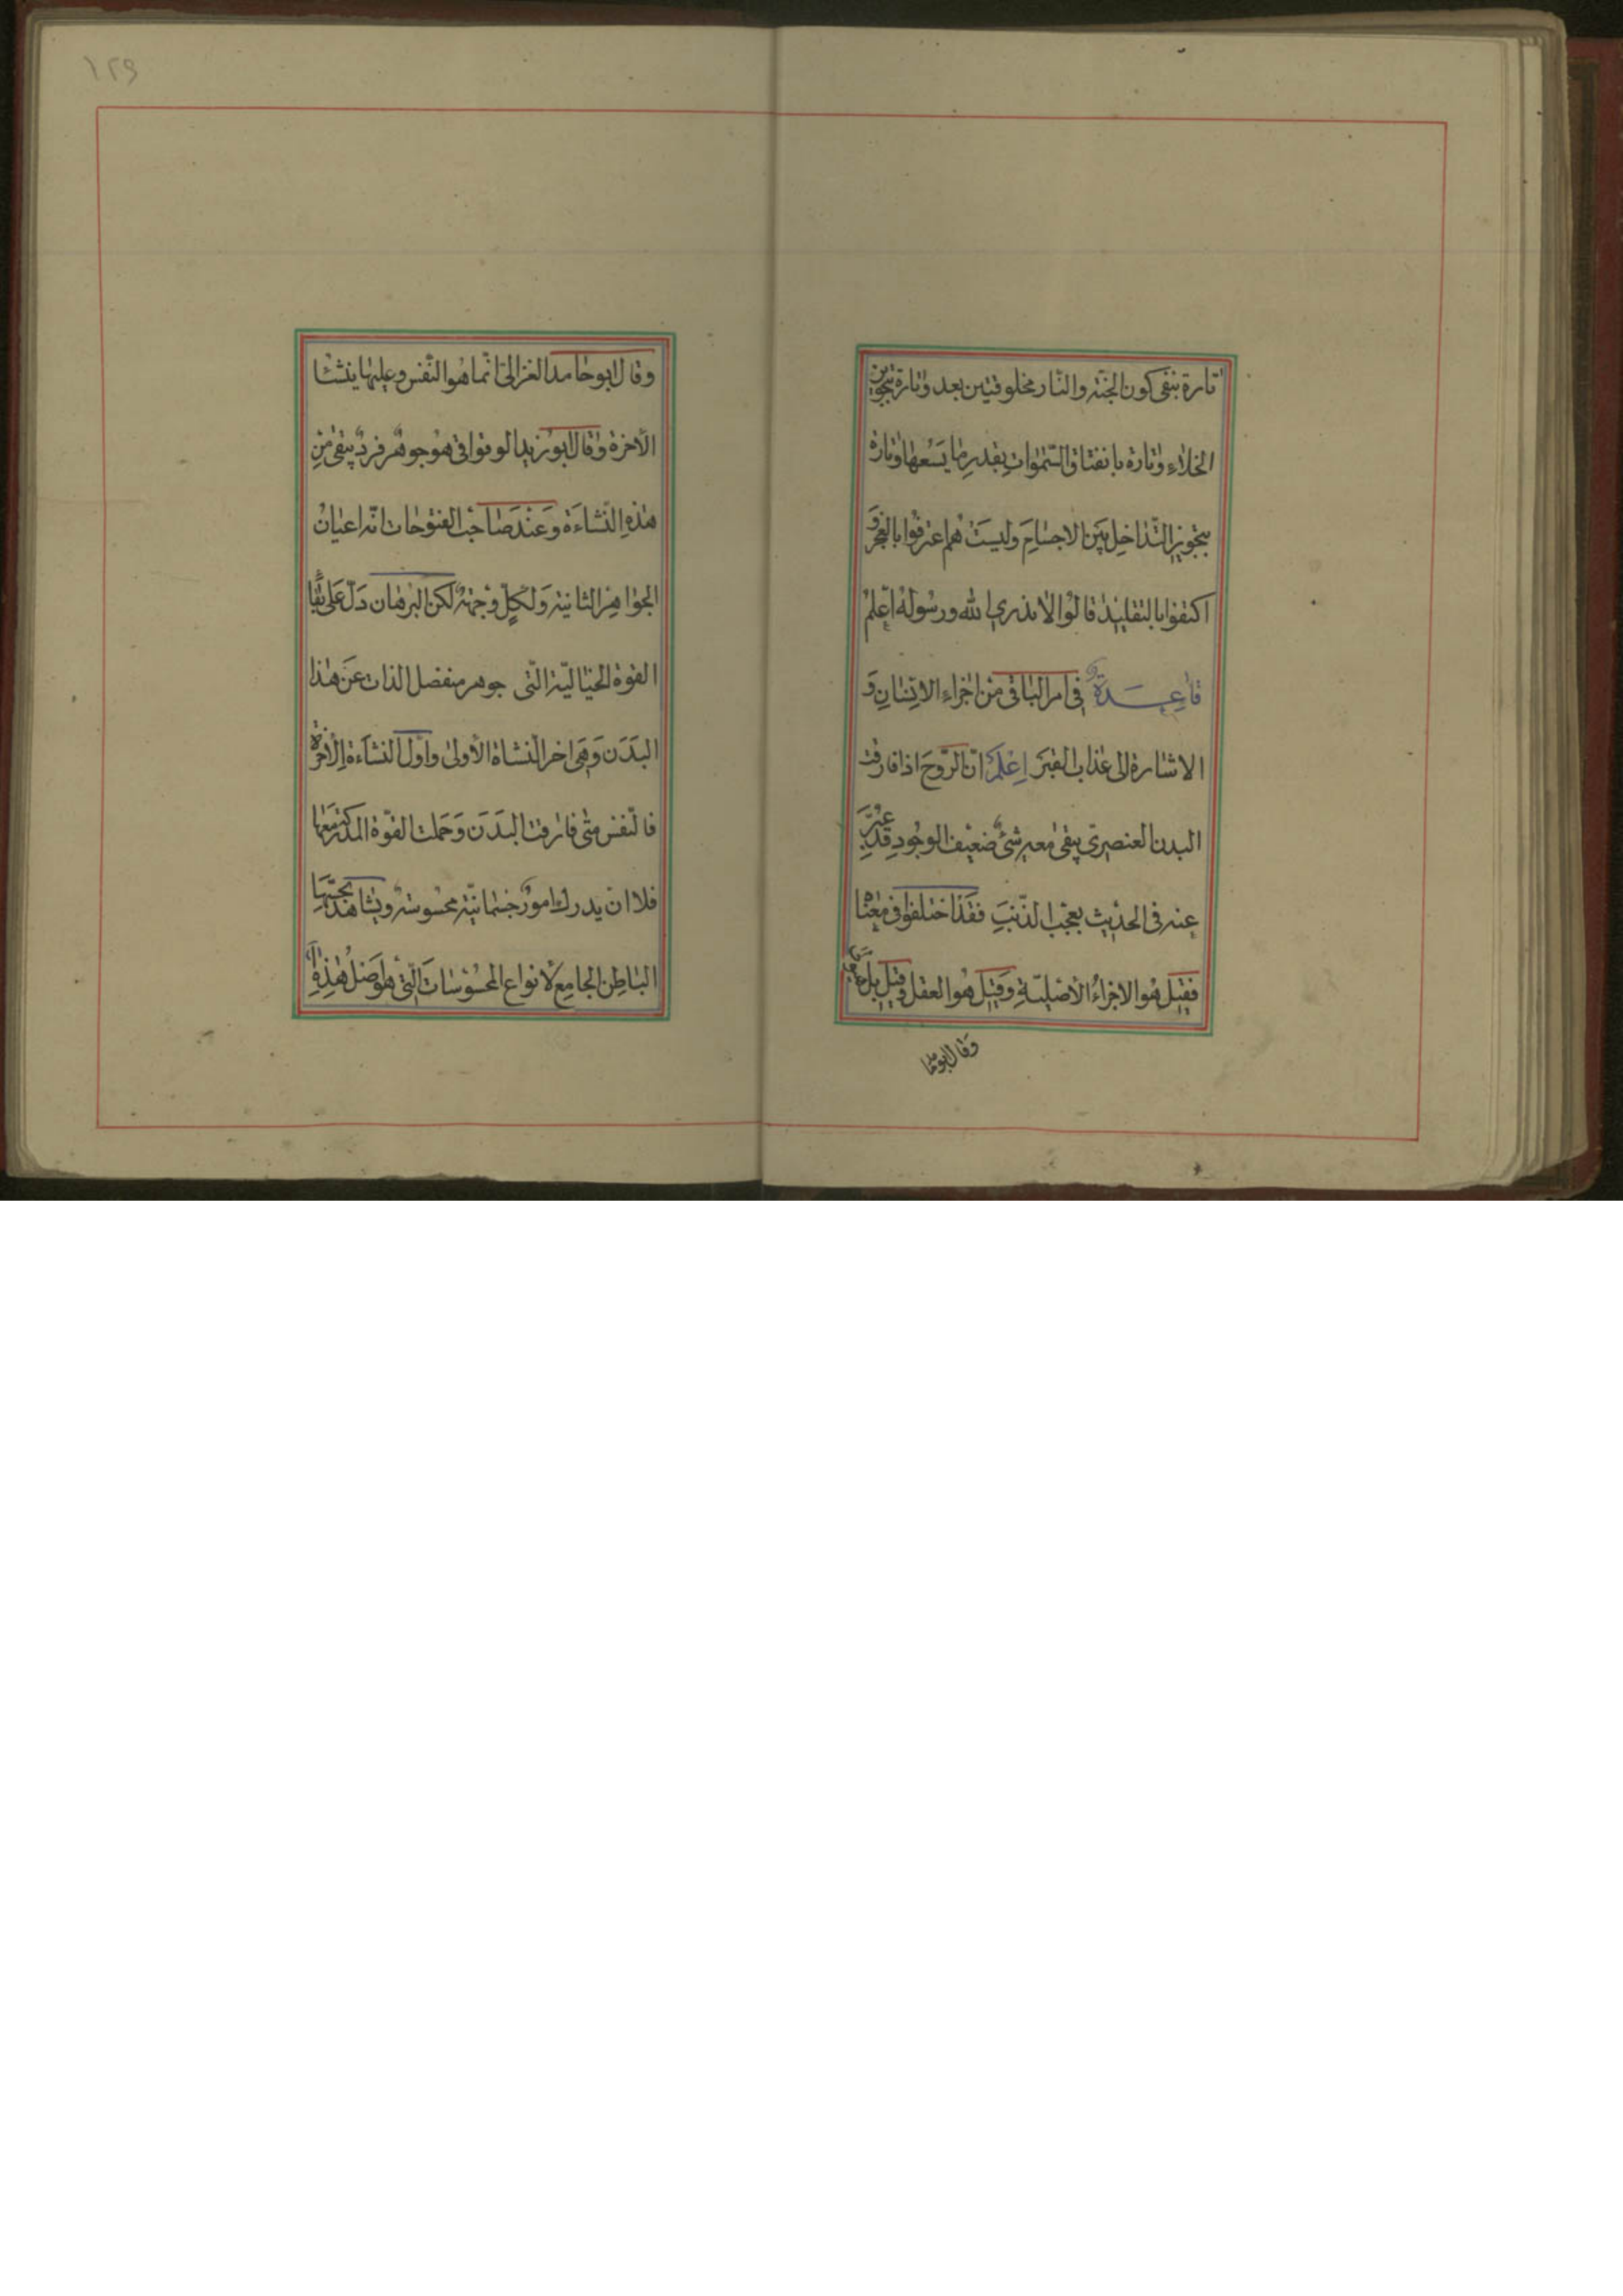 تارة بنفی كون الجنّة والنّار مخلوقتین بعد وتارة بتجویز
الخلاء وتارة بانفتاق السّموات بقدر ما یسعها وتارة
بتجویز التّداخل بین الاجسام ولیت هم اعترفوا بالعجز و
اكتفوا بالتقلید قالوا لا ندری الله ورسوله اعلم
قاعدة فی امر الباقی من اجزاء الانسان و
الاشارة الی عذاب القبر اعلم انّ الرّوح اذا فارقت
البدن العنصری یبقی معه شیٌ ضعیف الوجود قد عبّر
عنه فی الحدیث بعجب الذّنب فقد اختلفوا فی معناه
فقیل هو الاجزاء الأصلیّة وقیل هو العقل وقیل بل
وقال ابو حامد
١٢٩
وقال ابو حامد الغزالی انّما هو النّفس وعلیها ینشئا
الآخرة وقال ابو زید الوقواقی هو جوهر فرد یبقی من
هذه النّشاءة وعند صاحب الفتوحات انّه اعیان
الجواهر الثانیة ولكلّ وجهة لكن البرهان دلّ علی بقا
القوة الخیالیّة الّتی جوهر منفصل الذات عن هذا
البدن وهی اخر النّشاة الأولی واوّل النشاءة الآخرة
فالنّفس متی فارقت البدن وحملت القوّة المدركة معها
فلا ان یدرك امورٌ جسمانیّة محسوسة ویشاهد بحسّها
الباطن الجامع لأنواع المحسوسات الّتی هو اصل هذه